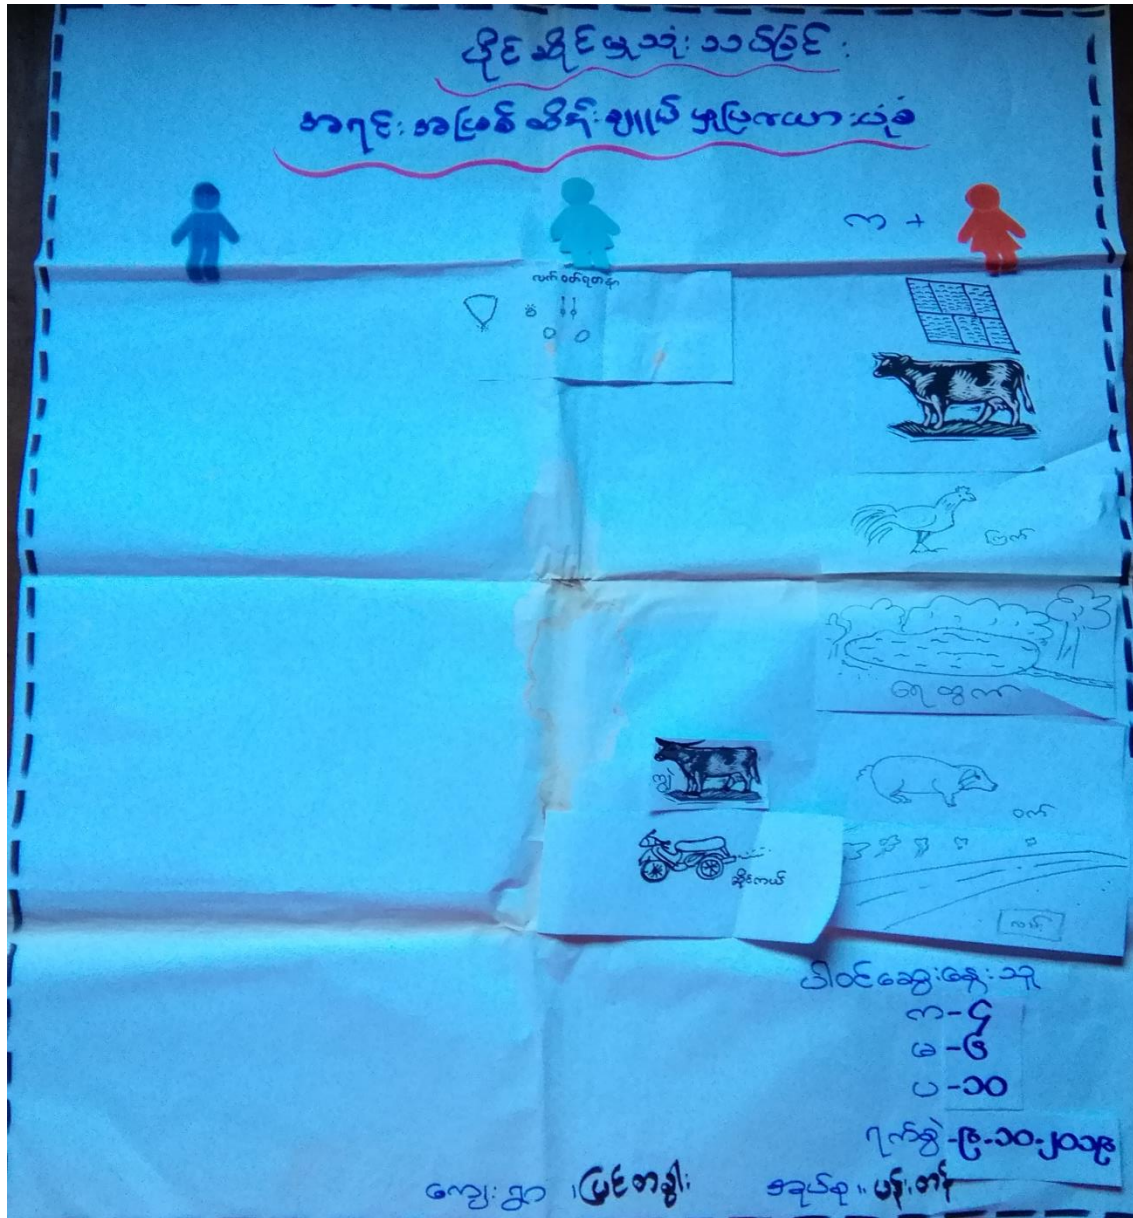 ပိုင်ဆိုင်မှုသုံးသပ်ခြင်း
အရင်းအမြစ်ထိန်းချုပ်မှုပြကားယားပုံစံ
က +
လက်ဝတ်ရတနာ
ကြက်
ရေတွက်
ကျွဲ
ဝက်
ဆိုင်ကယ်
လမ်း
ပါဝင်ဆွေးနွေးသူ
က - ၄
မ - ၆
ပ - ၁၀
ရက်စွဲ - ၉-၁၀-၂၀၁၉
ကျေးရွာ ။ မြင်တခွါး အုပ်စု ။ ပန်းတန်